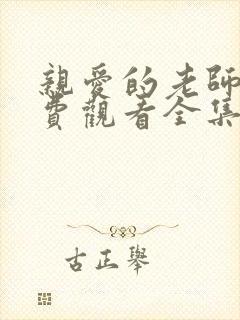 親愛的老師
費觀看全集
古正舉